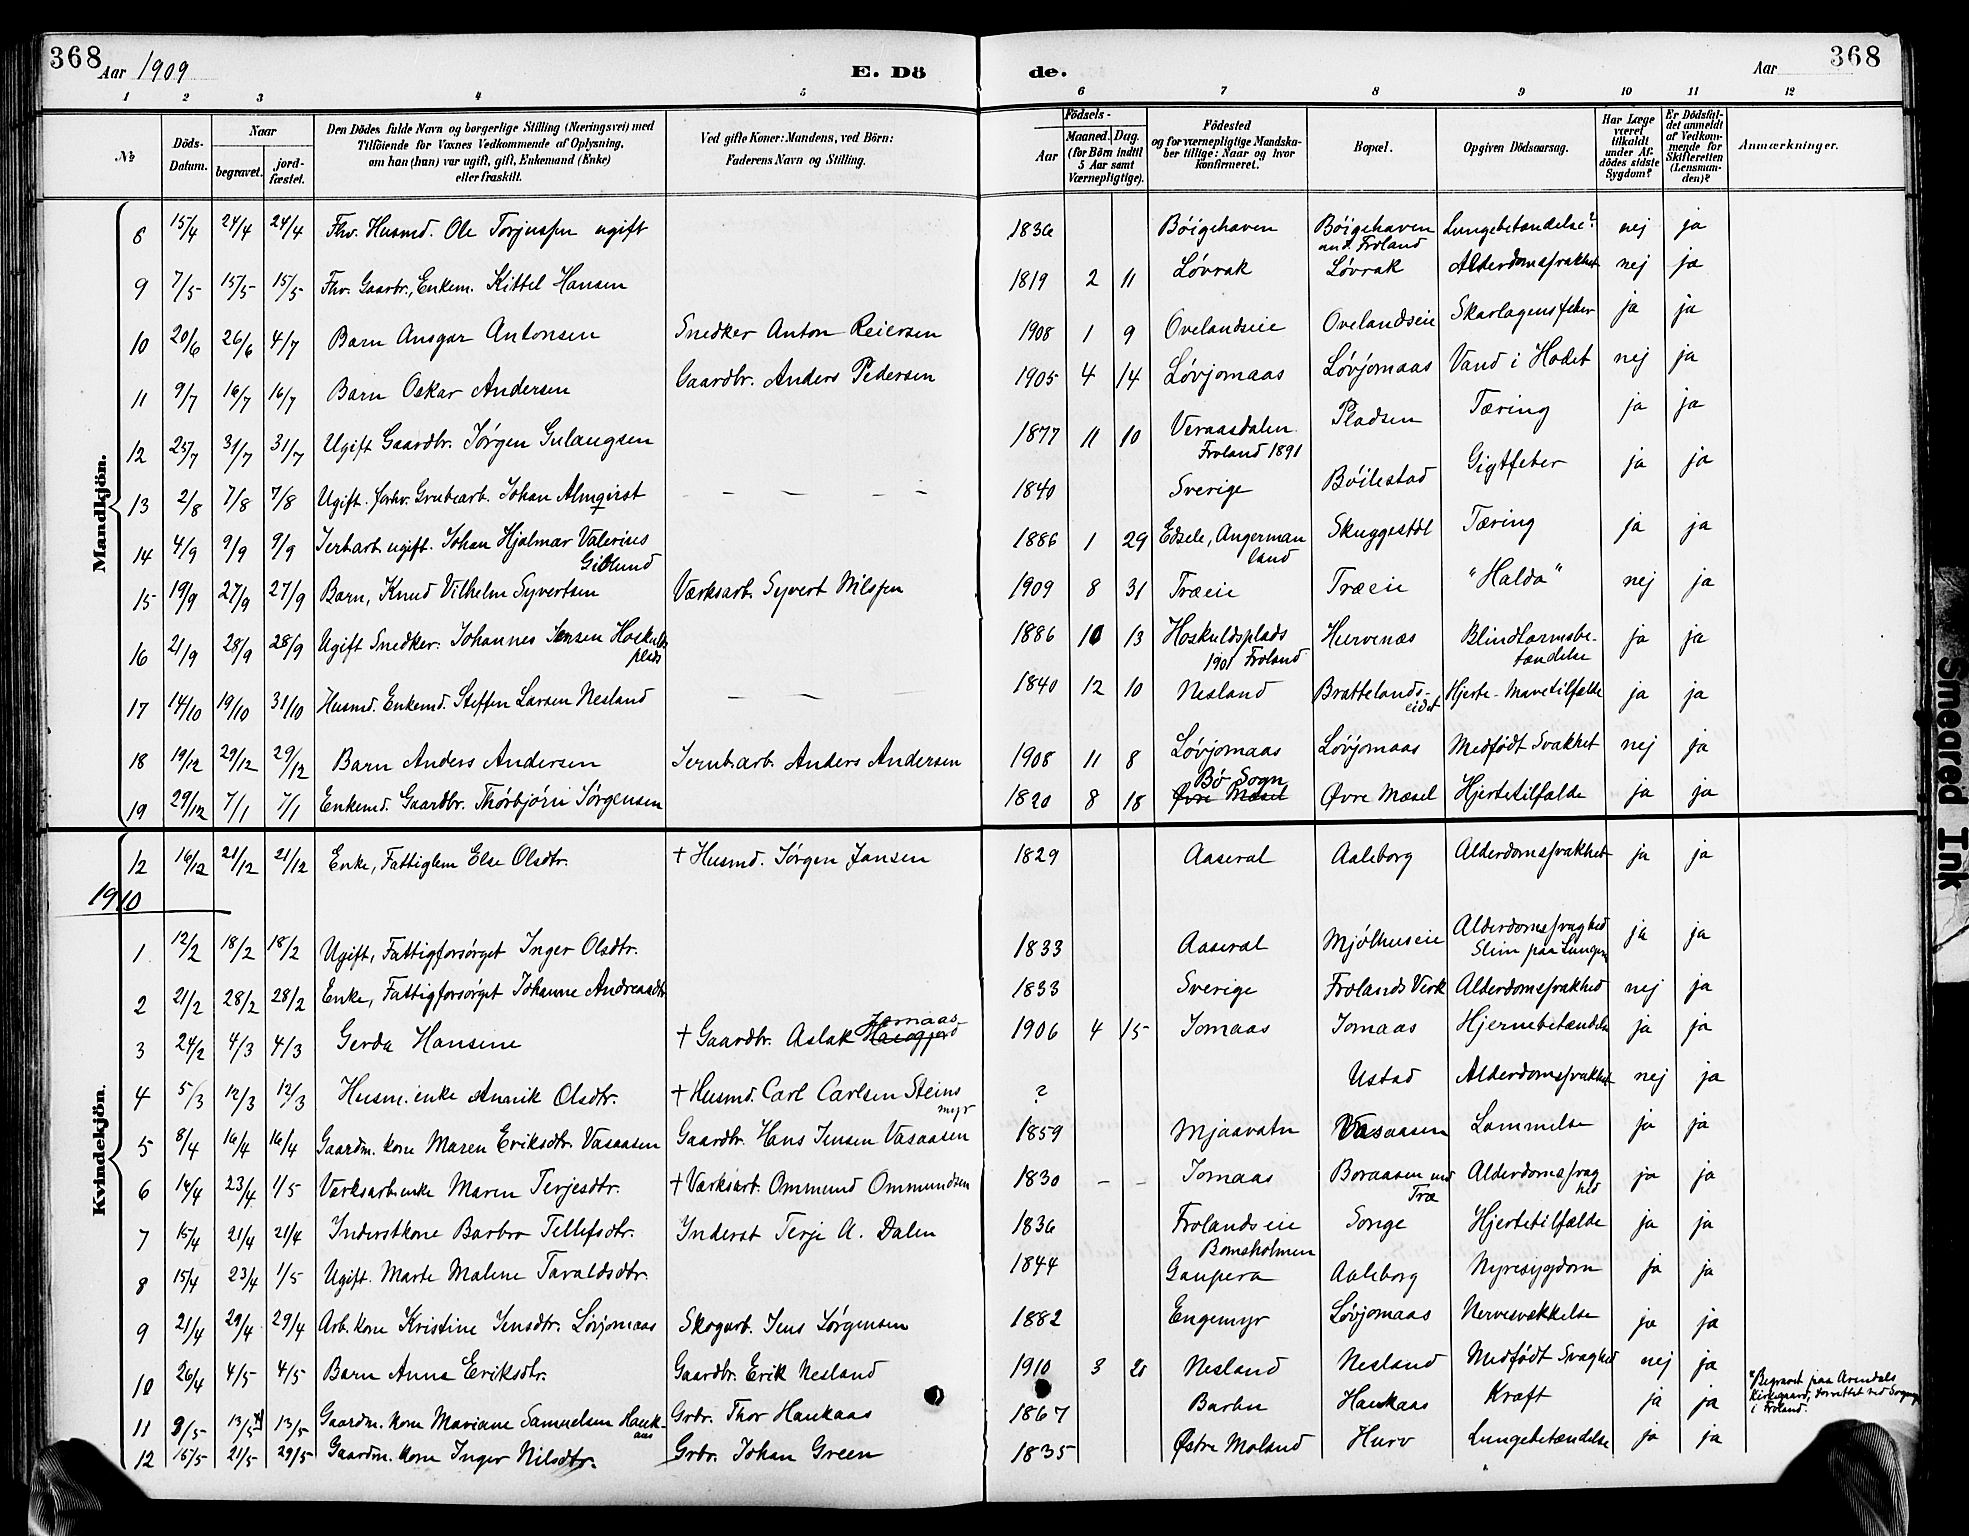 368 Aar 1909 E. Dö de. Aar 368
1 2 3 4 5 6 7 8 9 10 11 12
№ Döds-Datum. Naar begravet. jord-fæstet. Den Dödes fulde Navn og borgerlige Stilling (Næringsvei) med Tilföiende for Voxnes Vedkommende af Oplysning, om han (hun) var ugift, gift, Enkemand (Enke) eller fraskilt. Ved gifte Koner: Mandens, ved Börn: Faderens Navn og Stilling. Födsels- Aar Maaned. Dag. (for Börn indtil 5 Aar samt Værnepligtige). Födested og for værnepligtige Mandskaber tillige: Naar og hvor konfirmeret. Bopæl. Opgiven Dödsaarsag. Har Læge været tilkaldt under Afdödes sidste Sygdom? Er Dödsfaldet anmeldt af Vedkommende for Skifteretten (Lensmanden)? Anmærkninger.
Mandkjön.
8 15/4 24/4 24/4 Fhv. Husmd. Ole Torjussen ugift 1836 Bøigehaven Bøigehaven und. Froland Lungebetændelse? nej ja
9 7/5 15/5 15/5 Fhv. Gaardbr., Enkem. Kittel Hansen 1819 2 11 Løvrak Løvrak Alderdomssvakhet nej ja
10 20/6 26/6 4/7 Barn Ansgar Antonsen Snedker Anton Reiersen 1908 1 9 Ovelandseie Ovelandseie Skarlagensfeber ja ja
11 9/7 16/7 16/7 Barn Oskar Andersen Gaardbr. Anders Pedersen 1905 4 14 Løvjomaas Løvjomaas Vand i Hodet nej ja
12 25/7 31/7 31/7 Ugift Gaardbr. Jørgen Gulaugsen 1877 11 10 Veraasdalen Froland 1891 Pladsen Tæring ja ja
13 2/8 7/8 7/8 Ugift. forhv. Grubearb. Johan Almqvist – – – – 1840 Sverige Bøilestad Gigtfeber ja ja
14 4/9 9/9 9/9 Jernarb. ugift. Johan Hjalmar Valerius Giblund 1886 1 29 Edsele, Angermanland Skuggestøl Tæring ja ja
15 19/9 27/9 27/9 Barn, Knud Vilhelm Syvertsen Værksarb. Syvert Nilssen 1909 8 31 Træeie Træeie "Halda" nej ja
16 21/9 28/9 28/9 Ugift Snedker. Johannes Jensen Hoskuldsplads 1886 10 13 Hoskuldsplads 1901 Froland Hurvenæs Blindtarmsbetændelse ja ja
17 14/10 19/10 31/10 Husmd. Enkemd. Steffen Larsen Nesland – – – 1840 12 10 Nesland Brattelandseidet Hjerte-Mavetilfælde ja ja
18 19/12 29/12 29/12 Barn Anders Andersen Jernb.arb. Anders Andersen 1908 11 8 Løvjomaas Løvjomaas Medfødt Svakhet nej ja
19 29/12 7/1 7/1 Enkemd. Gaardbr. Thorbjørn Jørgensen 1820 8 18 Bø Sogn Øvre Mæsel Øvre Mæsel Hjertetilfælde ja ja
Kvindekjön.
12 16/12 21/12 21/12 Enke, Fattiglem Else Olsdtr. + Husmd. Jørgen Jansen 1829 Aaseral Aaleborg Alderdomssvakhet ja ja
1910
1 12/2 18/2 18/2 Ugift, Fattigforsørget Inger Olsdtr. 1833 Aaseral Mjølhuseie Alderdomssvaghed Slim paa Lungen ja ja
2 21/2 28/2 28/2 Enke, Fattigforsørget Johanne Andreasdtr 1833 Sverige Frolands Verk Alderdomssvakhed nej ja
3 24/2 4/3 4/3 Gerda Hansine + Gaardbr. Aslak Jomaas 1906 4 15 Jomaas Jomaas Hjernebetændelse ja ja
4 5/3 12/3 12/3 Husm. enke Annik Olsdtr. + Husmd. Carl Carlsen Steinsmyr ? Ustad Alderdomssvakhet nej ja
5 8/4 16/4 16/4 Gaardm. kone Maren Eriksdtr. Vasaasen Gaardbr. Hans Jensen Vasaasen 1859 Mjaavatn Vasaasen Lammelse ja ja
6 14/4 23/4 1/5 Værksarb.enke Maren Terjesdtr. + Værksarb. Ommund Ommundsen 1830 – – Jomaas Boraasen und Træ Alderdomssvaghed ja ja
7 15/4 21/4 21/4 Inderstkone Barbro Tellefsdtr. Inderst Terje A. Dalen 1836 Frolandseie Songe Hjertetilfælde ja ja
8 15/4 23/4 1/5 Ugift. Marte Malene Taraldsdtr. 1844 Bomsholmen Gaupera Aaleborg Nyresygdom ja ja
9 21/4 29/4 29/4 Arb. kone Kristine Jensdtr. Løvjomaas Skogarb. Jens Jørgensen 1882 Engemyr Løvjomaas Nervesvekkelse ja ja
10 26/4 4/5 4/5 Barn Anna Eriksdtr. Gaardbr. Erik Nesland 1910 3 20 Nesland Nesland Medfødt Svaghed nej ja
11 8/5 13/5 13/5 Gaardm. kone Mariane Samuelsen Haukaas Grbr. Thor Haukaas 1867 Barbu Haukaas Kræft ja ja "Begravet paa Arendals Kirkegaard, forrettet ved Sogn i Froland.
12 15/5 21/5 29/5 Gaardm. kone Inger Nilsdtr. Grbr. Johan Green 1835 Østre Moland Hurv Lungebetændelse ja ja
Smeared Ink